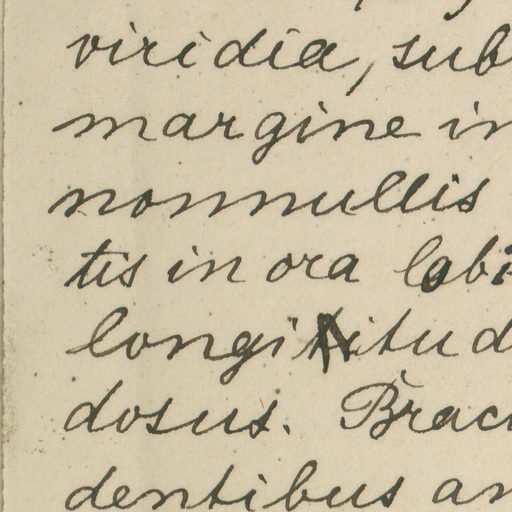 viridia, sub
margine in
nonnullis
tis in ora lobi
longitud
dosus. Brac
dentibus an